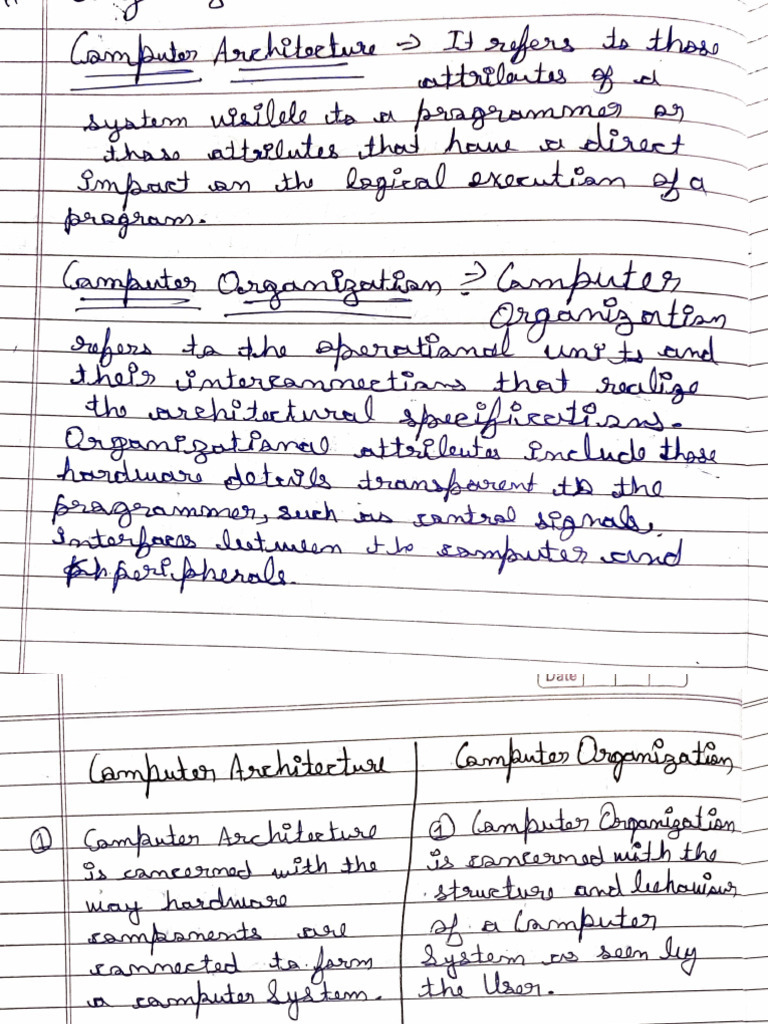 Computer Architecture => It refers to those
attributes of a
system visible to a programmer or
those attributes that have a direct
impact on the logical execution of a
program.
Computer Organization => Computer
Organization
refers to the operational units and
their interconnections that realize
the architectural specifications.
Organizational attributes include those
hardware details transparent to the
programmer, such as control signals,
interfaces between the computer and
peripherals.
Date
Computer Architecture
① Computer Architecture
is concerned with the
way hardware
components are
connected to form
a computer System.
Computer Organization
① Computer Organization
is concerned with the
structure and behaviour
of a Computer
System as seen by
the User.